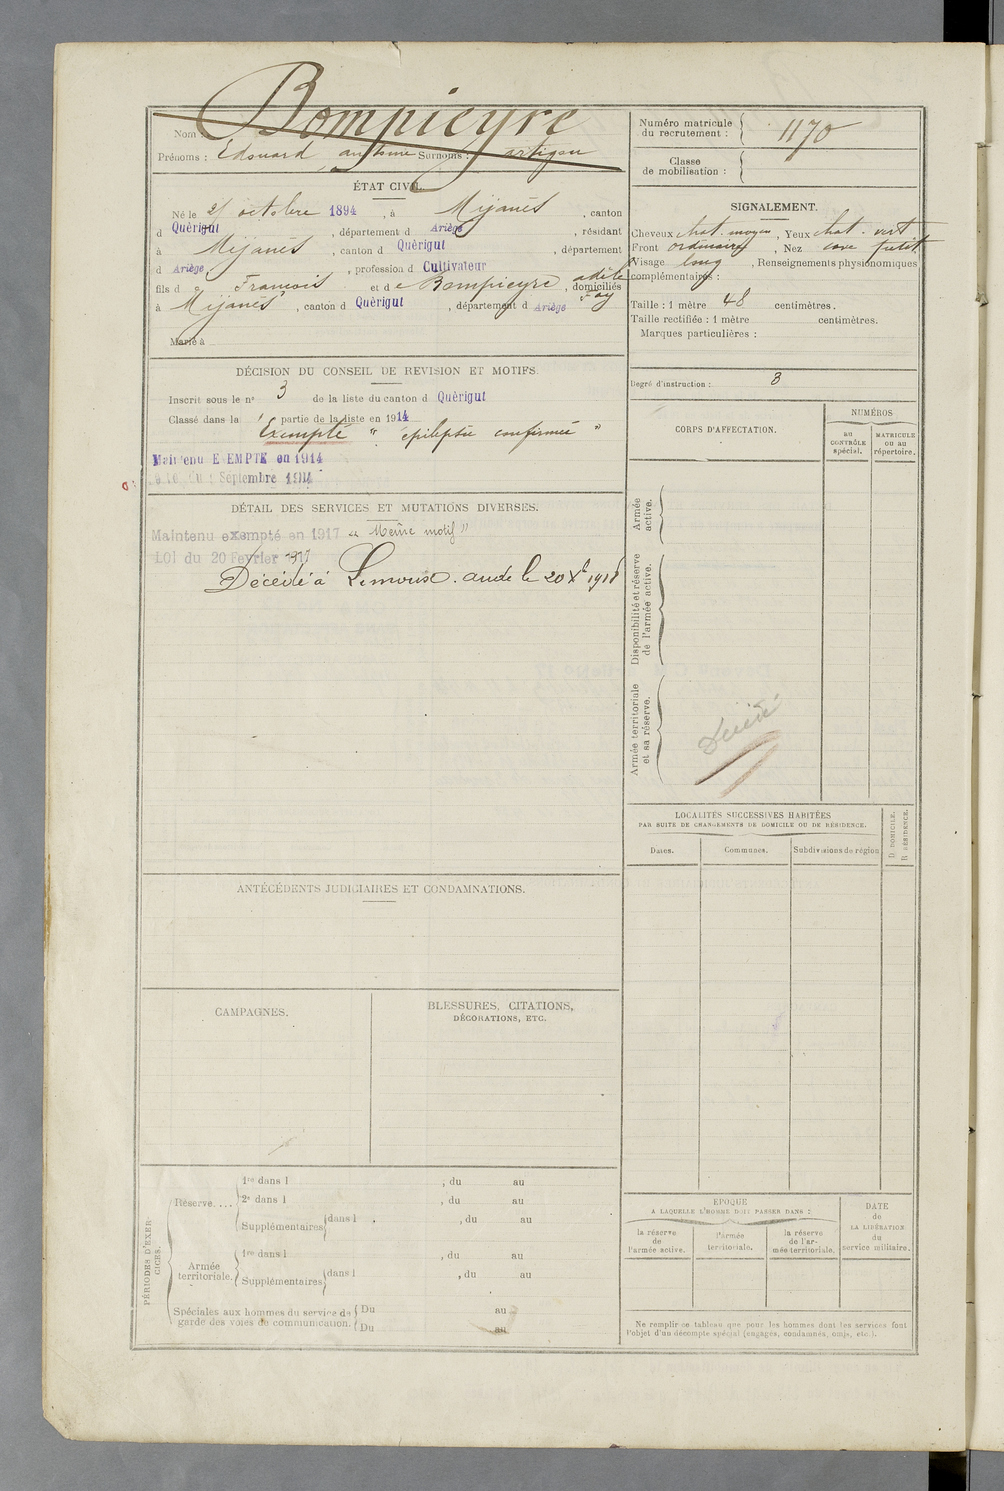 Bompieyre
Nom :
Prénoms : Edouard antoine Surnoms : artigou
Numéro matricule
du recrutement :
1170
Classe
de mobilisation :
ÉTAT CIVIL.
Né le octobre 1894, à Mijanès, canton
d Quèrigut, département d Ariège, résidant
à Mijanès, canton d Quèrigut, département
d Ariège, profession d Cultivateur
fils d François et de Bompieyre adèle, domiciliés
à Mijanès, canton d Quèrigut, département d Ariège
Marié à
SIGNALEMENT.
Cheveux chat. moyen, Yeux chat. vert
Front ordinaire, Nez cave petit
Visage long, Renseignements physionomiques
complémentaires :
Taille : 1 mètre 48 centimètres.
Taille rectifiée : 1 mètre centimètres.
Marques particulières :
Degré d'instruction : 3
DÉCISION DU CONSEIL DE REVISION ET MOTIFS
Inscrit sous le n° 3 de la liste du canton d Quèrigut
Classé dans la partie de la liste en 1914
Exempté " épilepsie confirmée "
Maintenu EXEMPTE en 1914
Septembre 1914
CORPS D'AFFECTATION.
NUMÉROS
AU
CONTRÔLE
spécial.
MATRICULE
OU AU
répertoire.
Armée
active.
Disponibilité et réserve
de l'armée active.
Armée territoriale
et sa réserve.
Décédé
DÉTAIL DES SERVICES ET MUTATIONS DIVERSES.
Maintenu exempté en 1917 " Même motif "
LOI du 20 Fevrier 1917
Décédé à Limoux. aude le 20 Xb 1918
LOCALITÉS SUCCESSIVES HABITÉES
PAR SUITE DE CHANGEMENTS DE DOMICILE OU DE RÉSIDENCE.
D. DOMICILE.
R. RÉSIDENCE.
Dates.
Communes.
Subdivisions de région
ANTÉCÉDENTS JUDICIAIRES ET CONDAMNATIONS.
CAMPAGNES.
BLESSURES, CITATIONS,
DÉCORATIONS, ETC.
PÉRIODES D'EXER-
CICES.
Réserve....
1re dans l , du au
2e dans l , du au
Supplémentaires dans l , du au
Armée
territoriale.
1re dans l , du au
Supplémentaires dans l , du au
Spéciales aux hommes du service de
garde des voies de communication.
Du au
Du au
EPOQUE
A LAQUELLE L'HOMME DOIT PASSER DANS :
la réserve
de
l'armée active.
l'armée
territoriale.
la réserve
de l'ar-
mée territoriale.
DATE
de
LA LIBÉRATION
du
service militaire.
Ne remplir ce tableau que pour les hommes dont les services font
l'objet d'un décompte spécial (engagés, condamnés, omis, etc.).